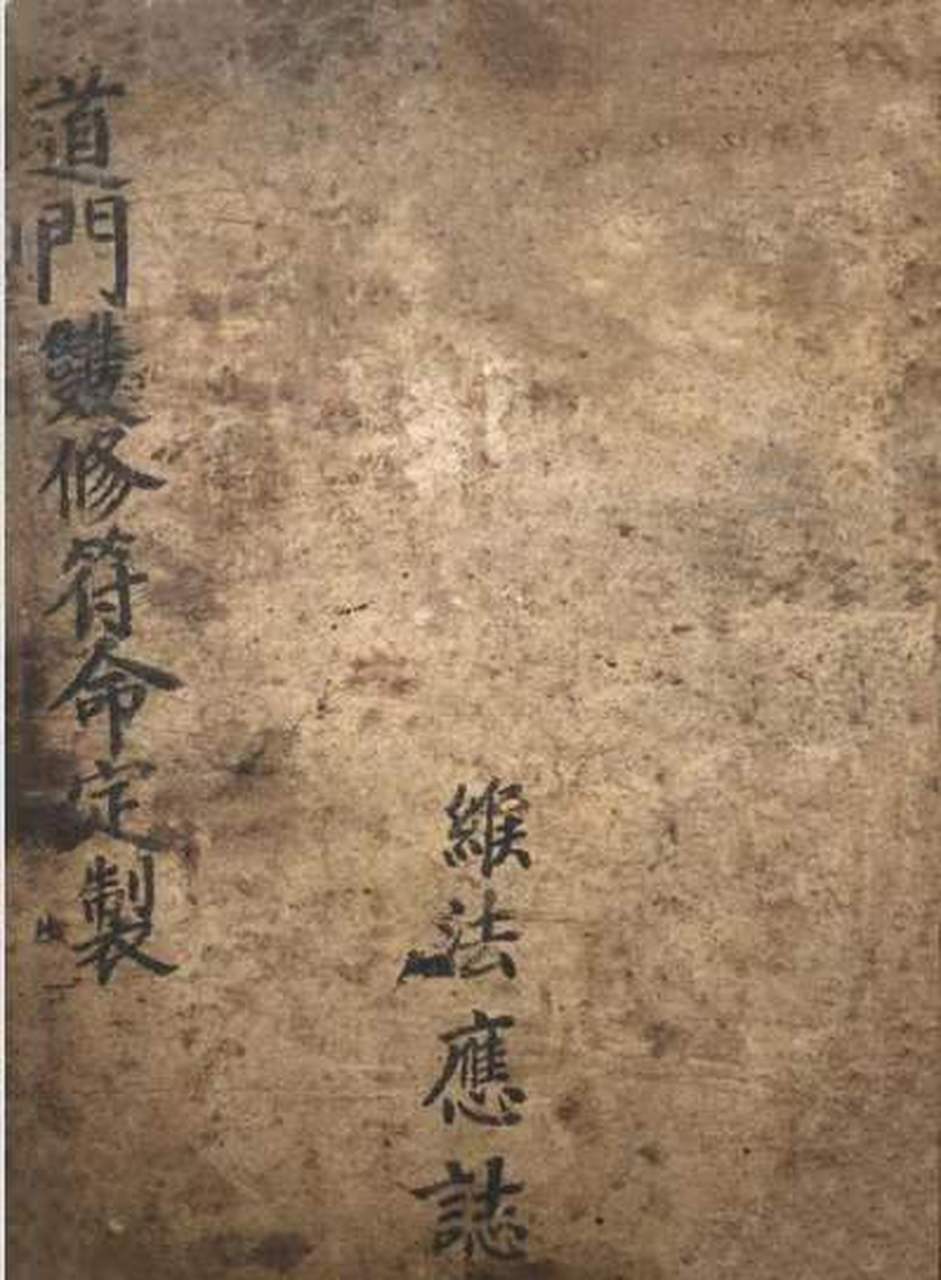 道門雙修符命定製
緱法應誌